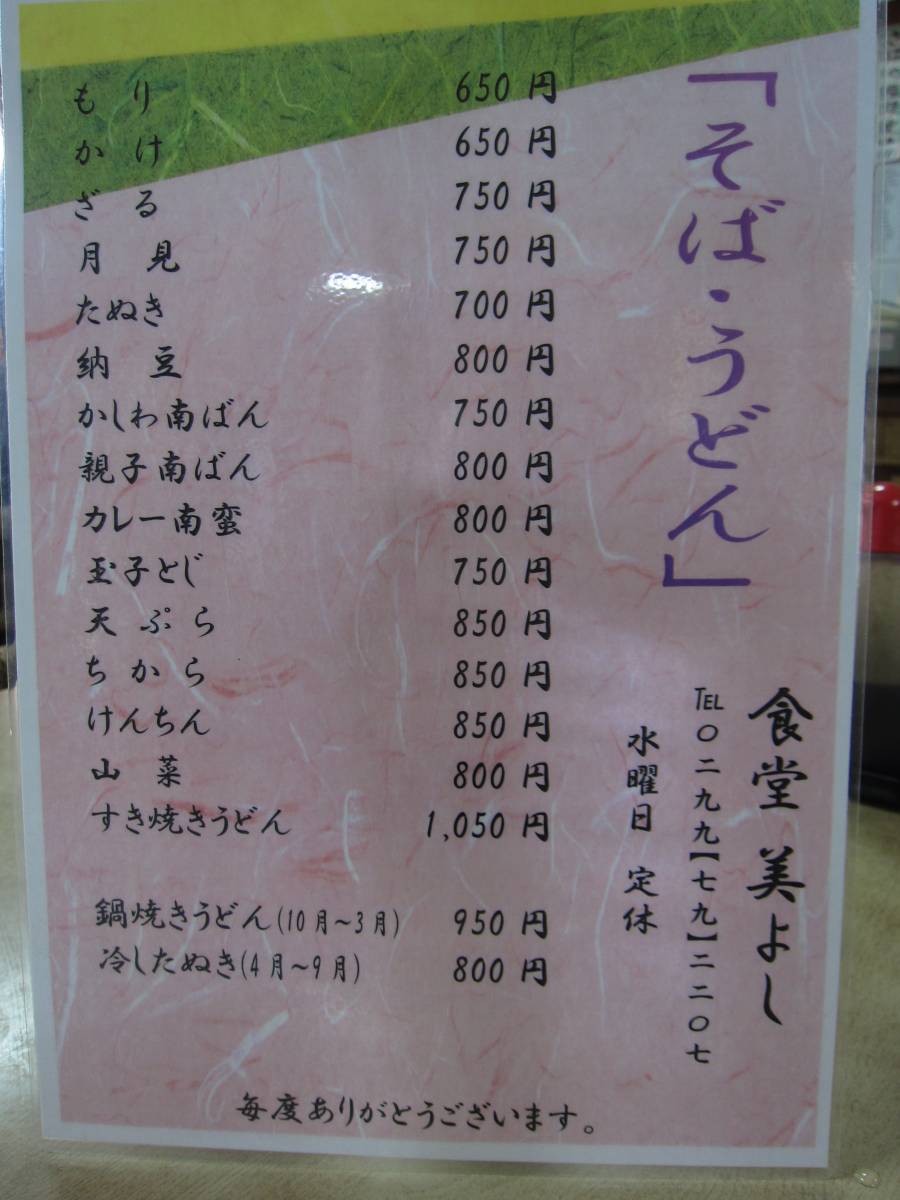 「そば・うどん」
もり 650円
かけ 650円
ざる 750円
月見 750円
たぬき 700円
納豆 800円
かしわ南ばん 750円
親子南ばん 800円
カレー南蛮 800円
玉子とじ 750円
天ぷら 850円
ちから 850円
けんちん 850円
山菜 800円
すき焼きうどん 1,050円
鍋焼きうどん(10月～3月) 950円
冷したぬき(4月～9月) 800円
食堂 美よし
TEL〇二九九【七九】二二〇七
水曜日 定休
毎度ありがとうございます。